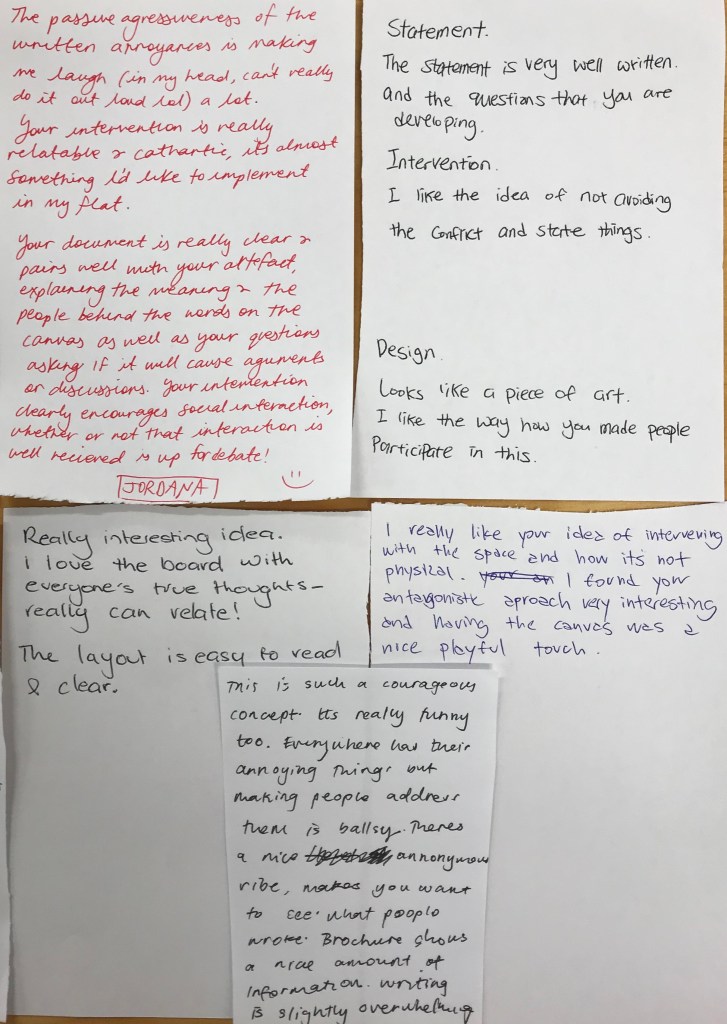 The passive agressiveness of the
written annoyances is making
me laugh (in my head, can't really
do it out loud lol) a lot.
Your intervention is really
relatable & cathartic, its almost
something i'd like to implement
in my flat.
Your document is really clear &
pairs well with your artefact,
explaining the meaning & the
people behind the words on the
canvas as well as your questions
asking if it will cause aguments
or discussions. Your intervention
clearly encourages social interaction,
whether or not that interaction is
well recieved is up for debate!
JORDANA
Statement.
The Statement is very well written.
and the questions that you are
developing.
Intervention.
I like the idea of not avoiding
the conflict and state things.
Design.
Looks like a piece of art.
I like the way how you made people
Participate in this.
Really interesting idea.
I love the board with
everyone's true thoughts-
really can relate!
The layout is easy to read
& clear.
I really like your idea of intervening
with the space and how its not
physical. I found your
antagonistic aproach very interesting
and having the canvas was a
nice playful touch.
This is such a courageous
concept. Its really funny
too. Everywhere has their
annoying things but
making people address
them is ballsy. Theres
a nice annonymous
vibe, makes you want
to see what people
wrote. Brochure shows
a nice amount of
information. writing
is slightly overwhelming